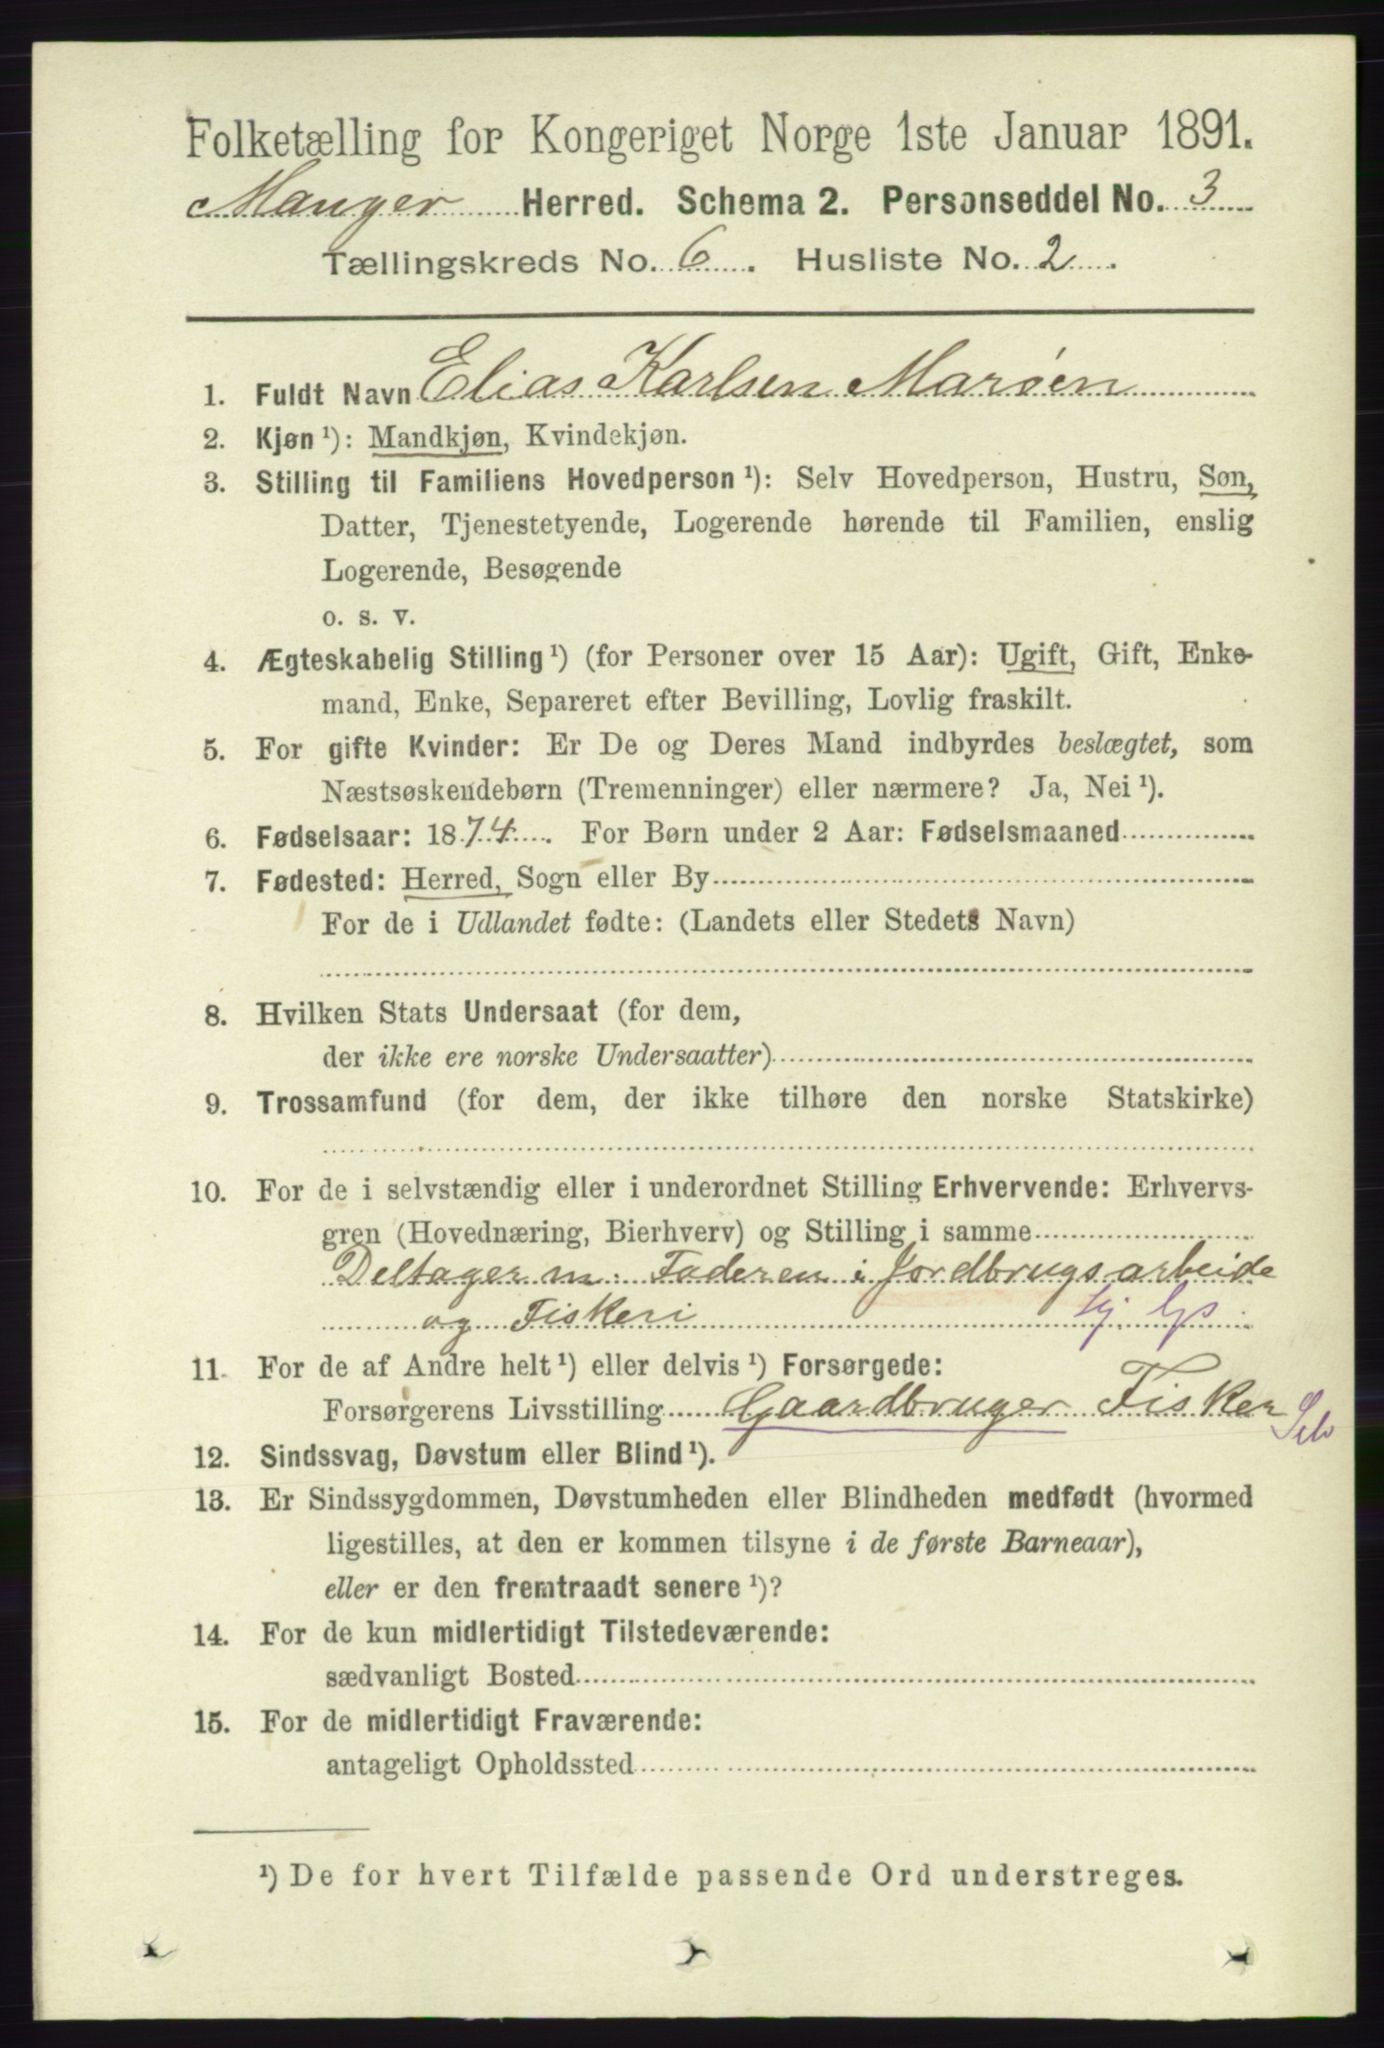 Folketælling for Kongeriget Norge 1ste Januar 1891.
Manger Herred. Schema 2. Personseddel No. 3
Tællingskreds No. 6. Husliste No. 2.
1. Fuldt Navn Elias Karlsen Marøen
2. Kjøn ¹): Mandkjøn, Kvindekjøn.
3. Stilling til Familiens Hovedperson ¹): Selv Hovedperson, Hustru, Søn,
Datter, Tjenestetyende, Logerende hørende til Familien, enslig
Logerende, Besøgende
o. s. v.
4. Ægteskabelig Stilling ¹) (for Personer over 15 Aar): Ugift, Gift, Enke-
mand, Enke, Separeret efter Bevilling, Lovlig fraskilt.
5. For gifte Kvinder: Er De og Deres Mand indbyrdes beslægtet, som
Næstsøskendebørn (Tremenninger) eller nærmere? Ja, Nei ¹).
6. Fødselsaar: 1874. For Børn under 2 Aar: Fødselsmaaned
7. Fødested: Herred, Sogn eller By
For de i Udlandet fødte: (Landets eller Stedets Navn)
8. Hvilken Stats Undersaat (for dem,
der ikke ere norske Undersaatter)
9. Trossamfund (for dem, der ikke tilhøre den norske Statskirke)
10. For de i selvstændig eller i underordnet Stilling Erhvervende: Erhvervs-
gren (Hovednæring, Bierhverv) og Stilling i samme
Deltager m: Faderen i Jordbrugsarbeide
og Fiskeri
11. For de af Andre helt ¹) eller delvis ¹) Forsørgede:
Forsørgerens Livsstilling Gaardbruger Fisker Selv
12. Sindssvag, Døvstum eller Blind ¹).
13. Er Sindssygdommen, Døvstumheden eller Blindheden medfødt (hvormed
ligestilles, at den er kommen tilsyne i de første Barneaar),
eller er den fremtraadt senere ¹)?
14. For de kun midlertidigt Tilstedeværende:
sædvanligt Bosted
15. For de midlertidigt Fraværende:
antageligt Opholdssted
¹) De for hvert Tilfælde passende Ord understreges.